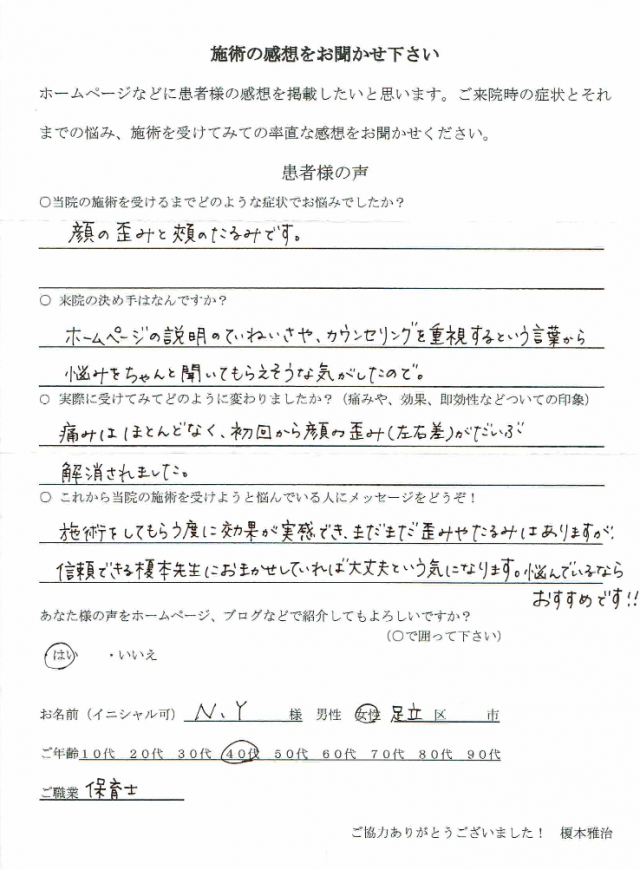 施術の感想をお聞かせ下さい
ホームページなどに患者様の感想を掲載したいと思います。ご来院時の症状とそれ
までの悩み、施術を受けてみての率直な感想をお聞かせください。
患者様の声
〇当院の施術を受けるまでどのような症状でお悩みでしたか？
顔の歪みと頬のたるみです。
〇 来院の決め手はなんですか？
ホームページの説明のていねいさや、カウンセリングを重視するという言葉から
悩みをちゃんと聞いてもらえそうな気がしたので。
〇 実際に受けてみてどのように変わりましたか？（痛みや、効果、即効性などついての印象）
痛みはほとんどなく、初回から顔の歪み(左右差)がだいぶ
解消されました。
〇 これから当院の施術を受けようと悩んでいる人にメッセージをどうぞ！
施術をしてもらう度に効果が実感でき、まだまだ歪みやたるみはありますが、
信頼できる榎本先生におまかせしていれば大丈夫という気になります。悩んでいるなら
おすすめです!!
あなた様の声をホームページ、ブログなどで紹介してもよろしいですか？
（〇で囲って下さい）
・はい ・いいえ
お名前（イニシャル可） N.Y 様 男性 女性 足立 区 市
ご年齢 10代 20代 30代 40代 50代 60代 70代 80代 90代
ご職業 保育士
ご協力ありがとうございました！ 榎本雅治